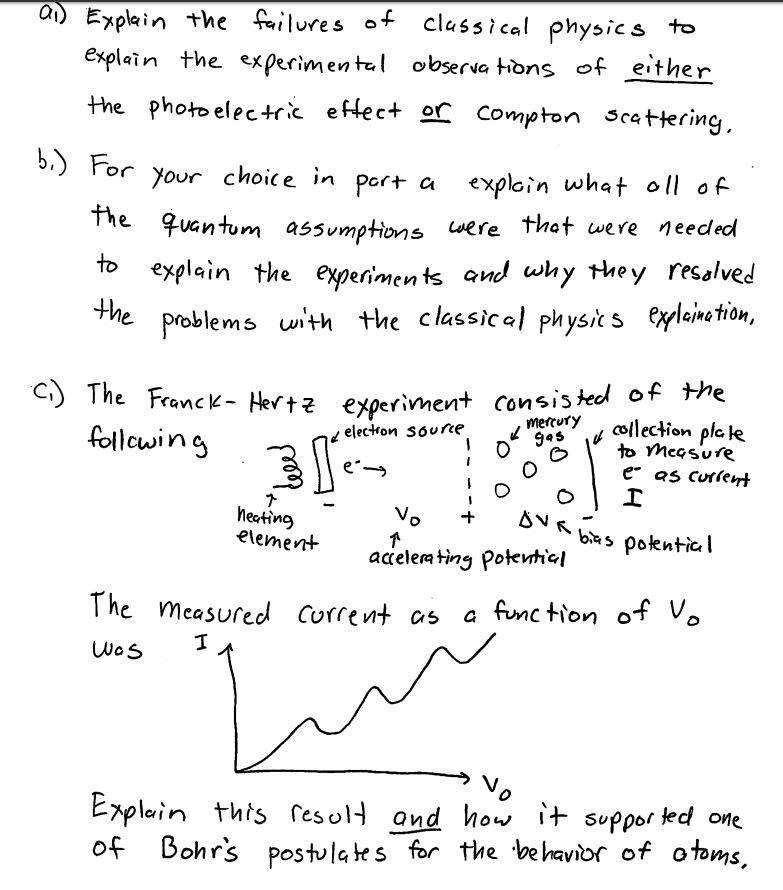 a.) Explain the failures of classical physics to
explain the experimental observations of either
the photoelectric effect or Compton scattering.
b.) For your choice in part a explain what all of
the quantum assumptions were that were needed
to explain the experiments and why they resolved
the problems with the classical physics explaination.
c.) The Franck-Hertz experiment consisted of the
following
electron source
mercury
gas
collection plate
to measure
e- as current
I
e-
heating
element
-
V₀
+
ΔV
-
bias potential
accelerating potential
The measured current as a function of V₀
was
I
V₀
Explain this result and how it supported one
of Bohr's postulates for the behavior of atoms.